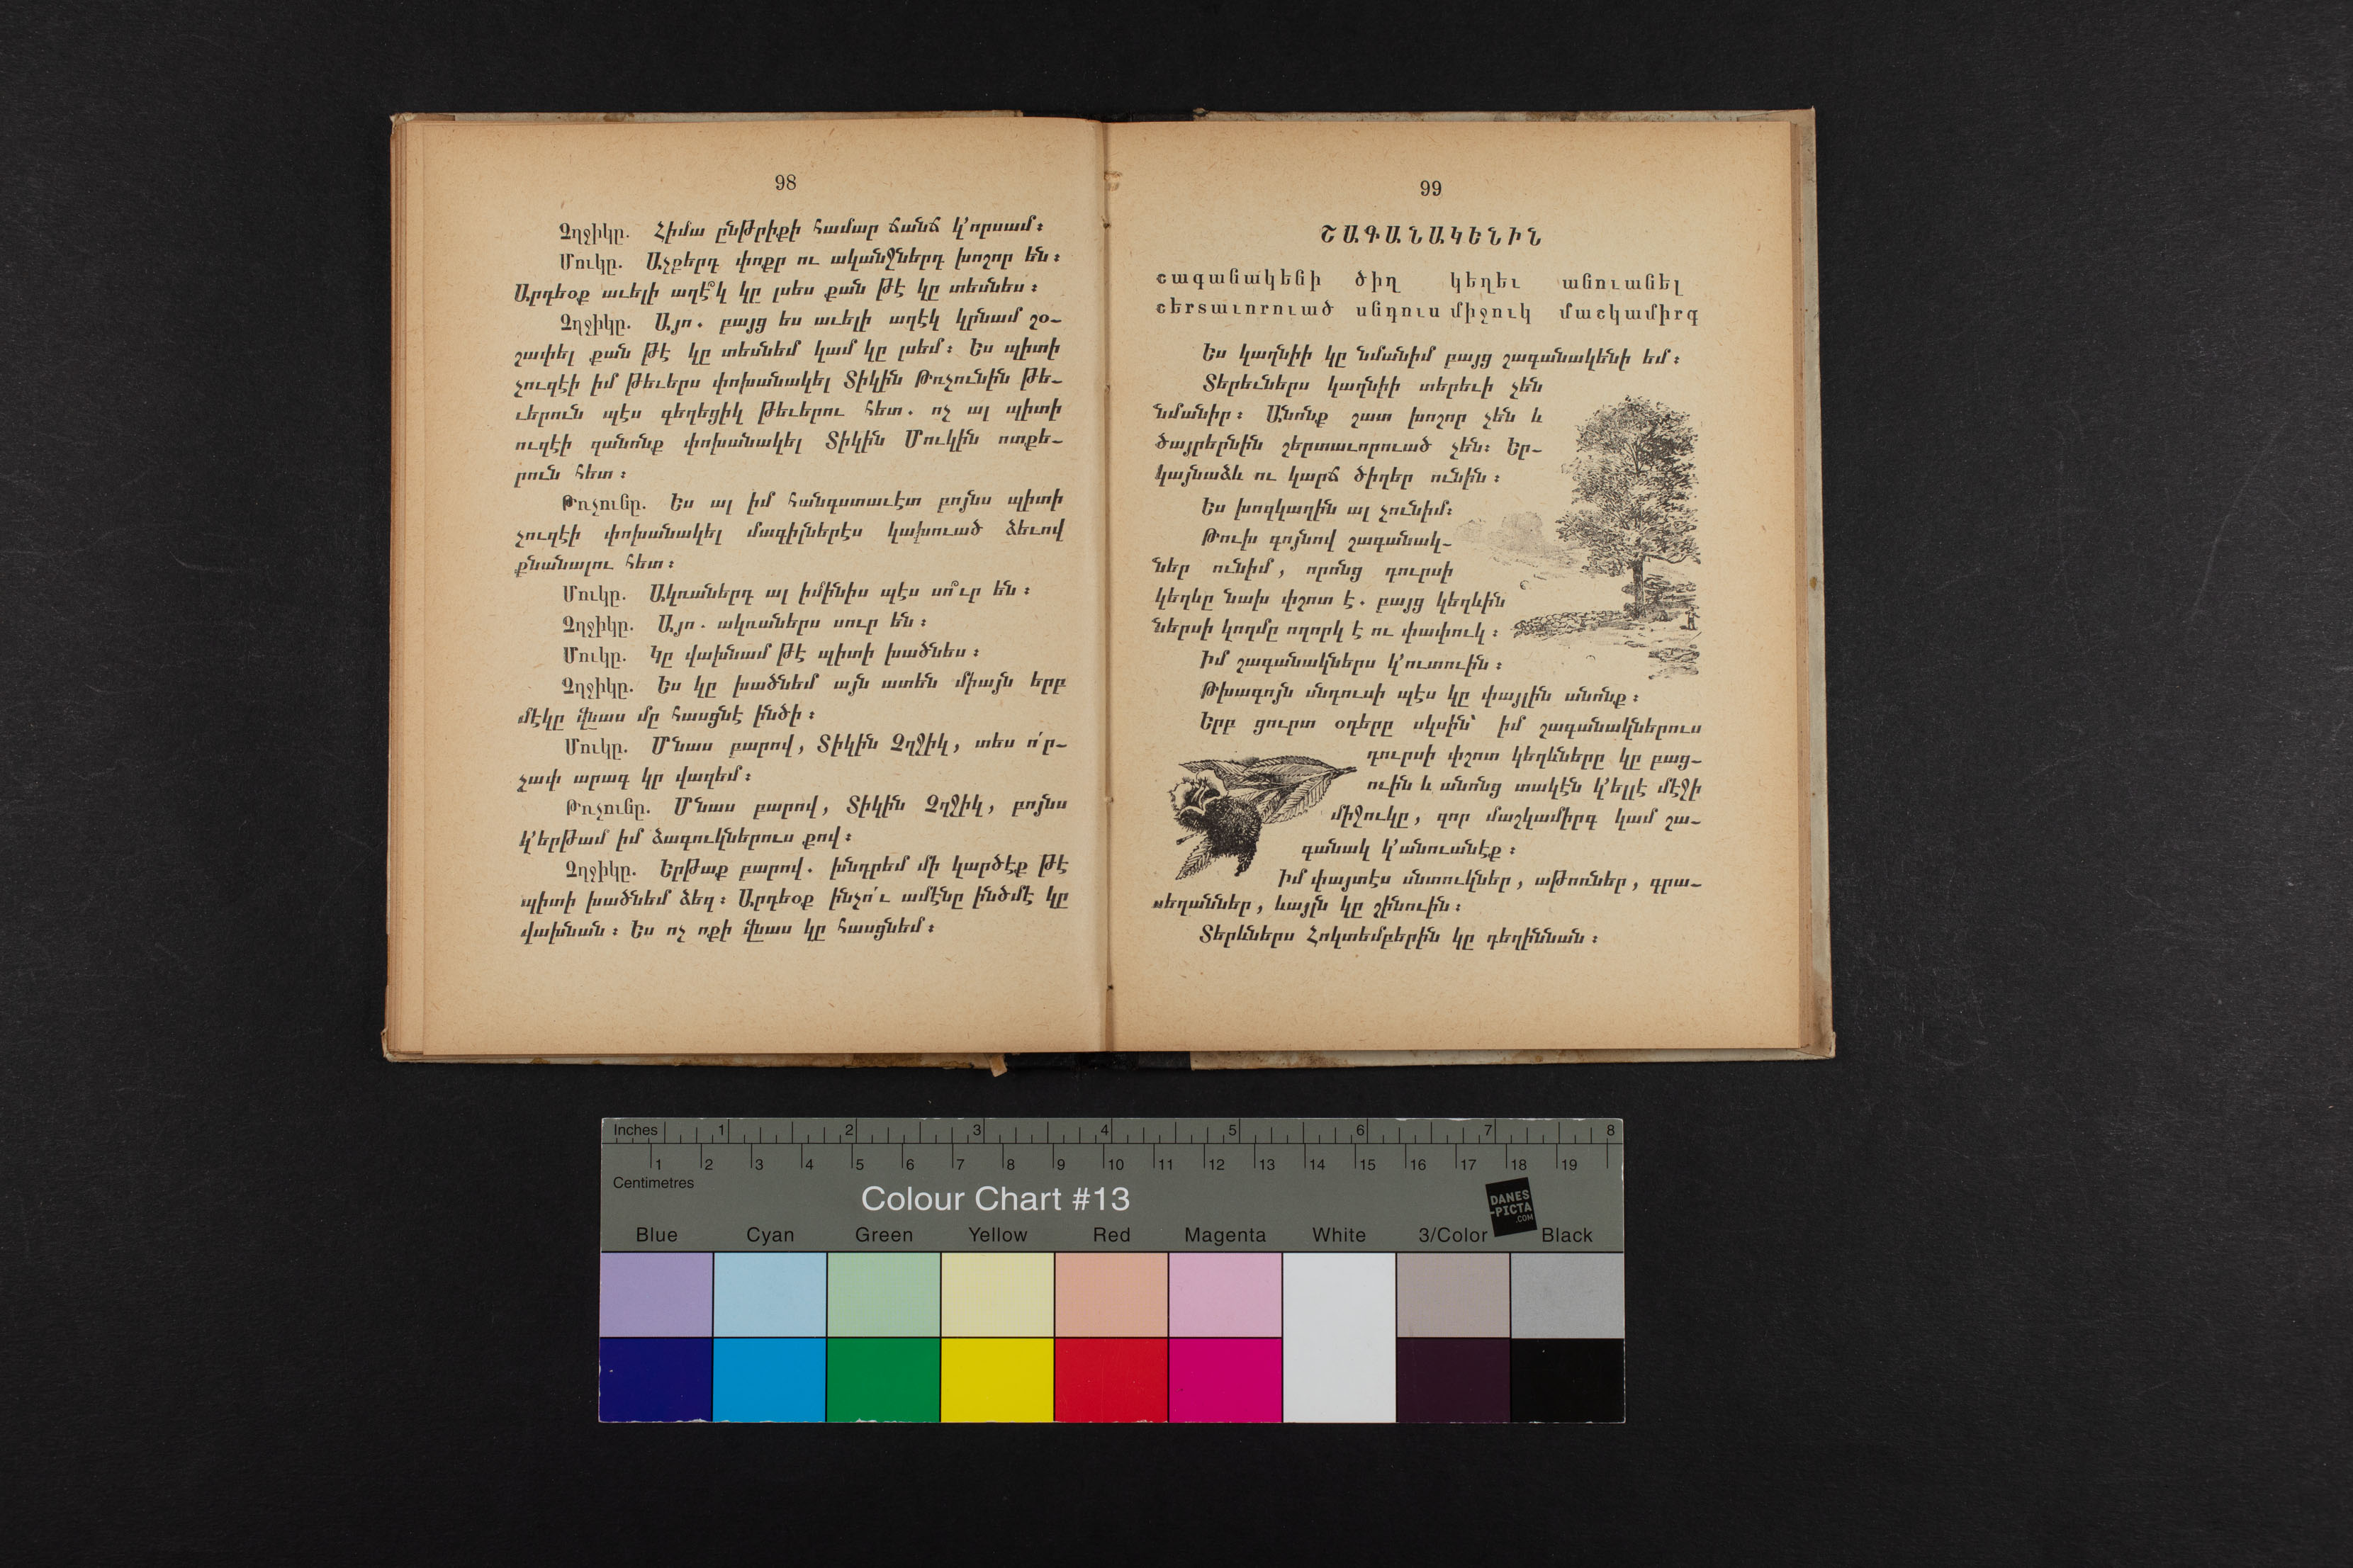 98
Չղջիկը. Հիմա ընթրիքի համար ճանճ կ՚որսամ։
Մուկը. Աչքերդ փոքր ու ականջներդ խոշոր են։
Արդեօք աւելի աղէ՞կ կը լսես քան թէ կը տեսնես։
Չղջիկը. Այո. բայց ես աւելի աղէկ կրնամ շօ-
շափել քան թէ կը տեսնեմ կամ կը լսեմ։ Ես պիտի
չուզէի իմ թեւերս փոխանակել Տիկին Թռչունին թե-
ւերուն պէս գեղեցիկ թեւերու հետ. ոչ ալ պիտի
ուզէի զանոնք փոխանակել Տիկին Մուկին ոտքե-
րուն հետ։
Թռչունը. Ես ալ իմ հանգստաւէտ բոյնս պիտի
չուզէի փոխանակել մագիլներէս կախուած ձեւով
քնանալու հետ։
Մուկը. Ակռաներդ ալ իմինիս պէս սո՞ւր են։
Չղջիկը. Այո. ակռաներս սուր են։
Մուկը. Կը վախնամ թէ պիտի խածնես։
Չղջիկը. Ես կը խածնեմ այն ատեն միայն երբ
մէկը վնաս մը հասցնէ ինծի։
Մուկը. Մնաս բարով, Տիկին Չղջիկ, տես ո՛ր-
չափ արագ կը վազեմ։
Թռչունը. Մնաս բարով, Տիկին Չղջիկ, բոյնս
կ՚երթամ իմ ձագուկներուս քով։
Չղջիկը. Երթաք բարով. խնդրեմ մի կարծէք թէ
պիտի խածնեմ ձեզ։ Արդեօք ինչո՛ւ ամէնը ինծմէ կը
վախնան։ Ես ոչ ոքի վնաս կը հասցնեմ։
99
ՇԱԳԱՆԱԿԵՆԻՆ
շագանակենի ծիղ կեղեւ անուանել
շերտաւորուած սնդուս միջուկ մաշկամիրգ
Ես կաղնիի կը նմանիմ բայց շագանակենի եմ։
Տերեւներս կաղնիի տերեւի չեն
նմանիր։ Անոնք շատ խոշոր չեն և
ծայրերնին շերտաւորուած չեն։ Եր-
կայնաձև ու կարճ ծիղեր ունին։
Ես խոզկաղին ալ չունիմ։
Թուխ գոյնով շագանակ-
ներ ունիմ, որոնց դուրսի
կեղևը նախ փշոտ է. բայց կեղևին
ներսի կողմը ողորկ է ու փափուկ։
Իմ շագանակներս կ՚ուտուին։
Թխագոյն սնդուսի պէս կը փայլին անոնք։
Երբ ցուրտ օդերը սկսին՝ իմ շագանակներուս
դուրսի փշոտ կեղևները կը բաց-
ուին և անոնց տակէն կ՚ելլէ մէջի
միջուկը, զոր մաշկամիրգ կամ շա-
գանակ կ՚անուանէք։
Իմ փայտէս սնտուկներ, աթոռներ, գրա-
սեղաններ, ևայլն կը շինուին։
Տերևներս Հոկտեմբերին կը դեղիննան։
Inches 1 2 3 4 5 6 7 8
1 2 3 4 5 6 7 8 9 10 11 12 13 14 15 16 17 18 19
Centimetres
Colour Chart #13
DANES
-PICTA
.COM
Blue Cyan Green Yellow Red Magenta White 3/Color Black